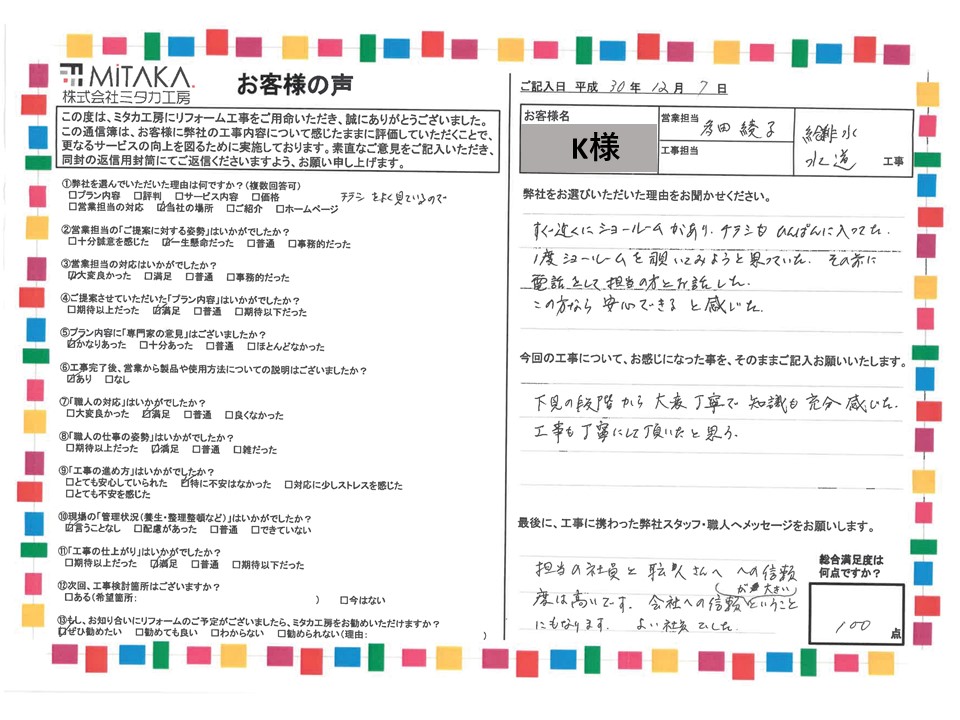 MiTAKA
株式会社ミタカ工房
お客様の声
この度は、ミタカ工房にリフォーム工事をご用命いただき、誠にありがとうございました。
この通信簿は、お客様に弊社の工事内容について感じたままに評価していただくことで、
更なるサービスの向上を図るために実施しております。素直なご意見をご記入いただき、
同封の返信用封筒にてご返信くださいますよう、お願い申し上げます。
①弊社を選んでいただいた理由は何ですか？(複数回答可)
□プラン内容 □評判 □サービス内容 □価格 チラシをよく見ているので
□営業担当の対応 ☑当社の場所 □ご紹介 □ホームページ
②営業担当の「ご提案に対する姿勢」はいかがでしたか？
□十分誠意を感じた ☑一生懸命だった □普通 □事務的だった
③営業担当の対応はいかがでしたか？
☑大変良かった □満足 □普通 □事務的だった
④ご提案させていただいた「プラン内容」はいかがでしたか？
□期待以上だった ☑満足 □普通 □期待以下だった
⑤プラン内容に「専門家の意見」はございましたか？
☑かなりあった □十分あった □普通 □ほとんどなかった
⑥工事完了後、営業から製品や使用方法についての説明はございましたか？
☑あり □なし
⑦「職人の対応」はいかがでしたか？
□大変良かった ☑満足 □普通 □良くなかった
⑧「職人の仕事の姿勢」はいかがでしたか？
□期待以上だった ☑満足 □普通 □雑だった
⑨「工事の進め方」はいかがでしたか？
□とても安心していられた ☑特に不安はなかった □対応に少しストレスを感じた
□とても不安を感じた
⑩現場の「管理状況(養生・整理整頓など)」はいかがでしたか？
☑言うことなし □配慮があった □普通 □できていない
⑪「工事の仕上がり」はいかがでしたか？
□期待以上だった ☑満足 □普通 □期待以下だった
⑫次回、工事検討箇所はございますか？
□ある(希望箇所: ) □今はない
⑬もし、お知り合いにリフォームのご予定がございましたら、ミタカ工房をお勧めいただけますか？
☑ぜひ勧めたい □勧めても良い □わからない □勧められない(理由: )
ご記入日 平成 30 年 12 月 7 日
お客様名
K様
営業担当 多田 綾子
工事担当
給排水
水道 工事
弊社をお選びいただいた理由をお聞かせください。
すぐ近くにショールームがあり、チラシもひんぱんに入ってた。
1度ショールームを覗いてみようと思っていた。その前に
電話をして担当の方とお話した。
この方なら安心できると感じた。
今回の工事について、お感じになった事を、そのままご記入お願いいたします。
下見の段階から大変丁寧で知識も充分感じた。
工事も丁寧にして頂いたと思う。
最後に、工事に携わった弊社スタッフ・職人へメッセージをお願いします。
担当の社員と職人さんへ への信頼
が大きい
度は高いです。会社への信頼ということ
にもなります。 よい社員でした。
総合満足度は
何点ですか？
100 点